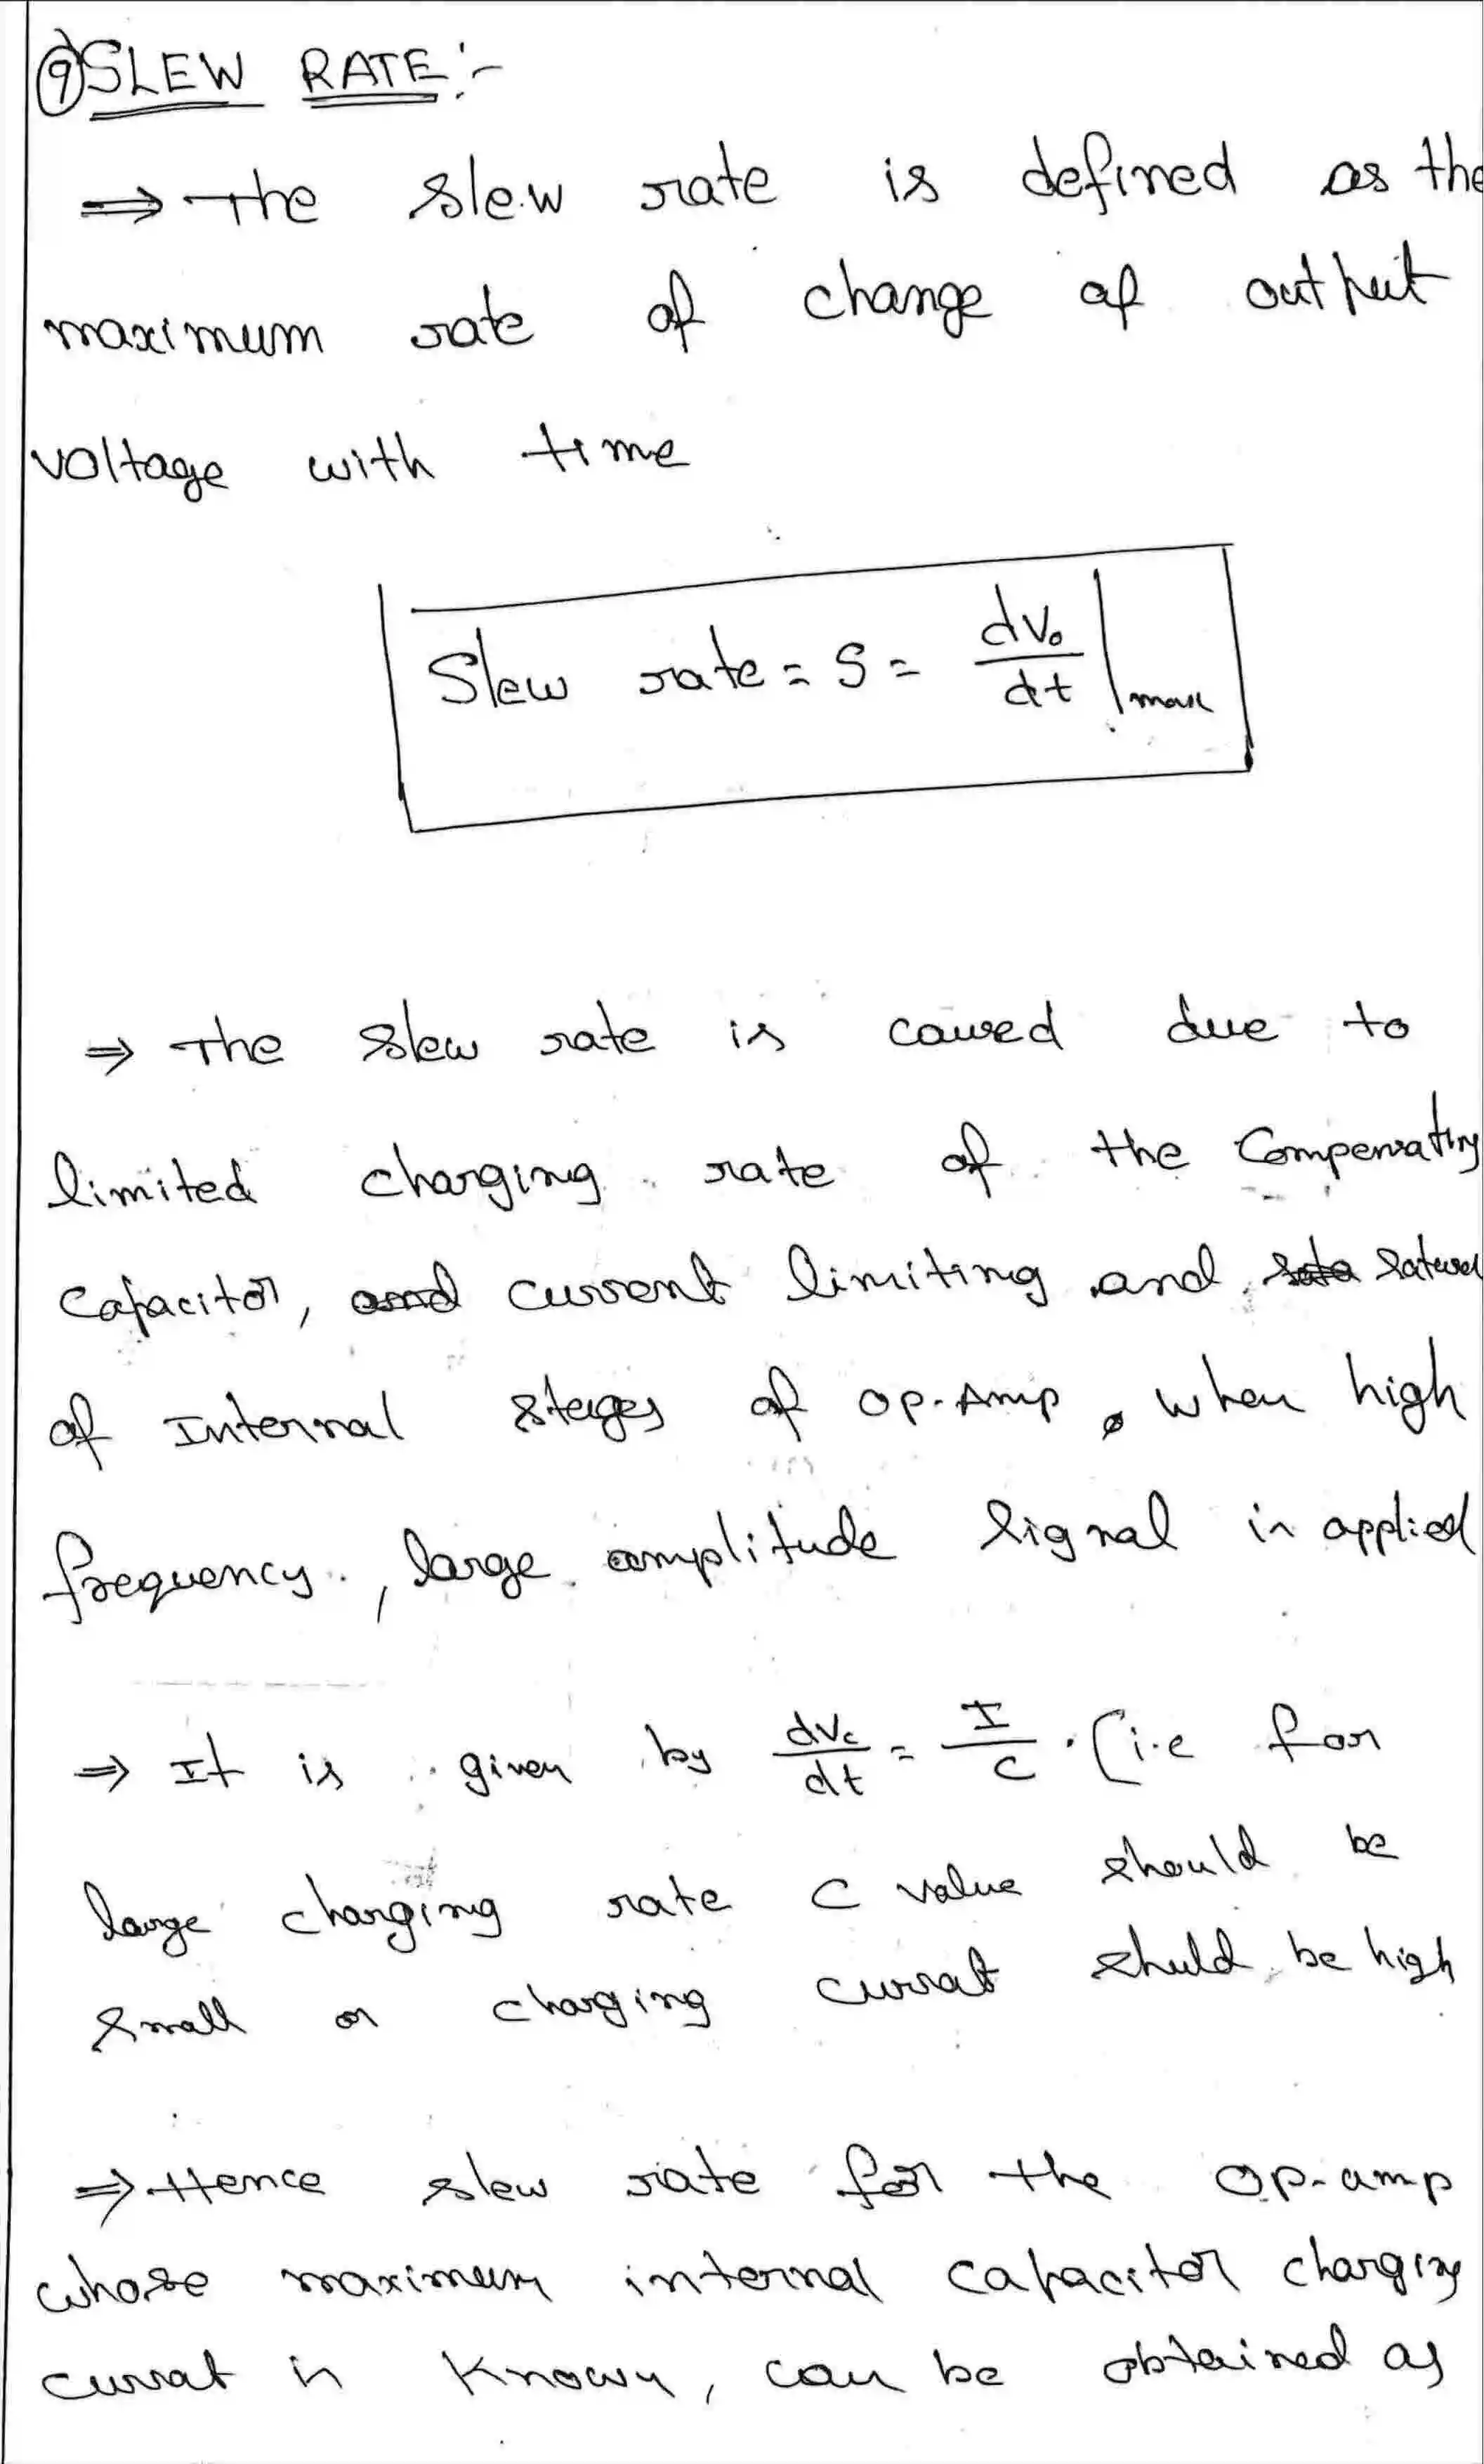 9) SLEW RATE :-
⇒ The slew rate is defined as the
maximum rate of change of output
voltage with time
Slew rate = S = dVo/dt |max
⇒ The slew rate is caused due to
limited charging rate of the Compensating
Capacitor, and current limiting and satura
of Internal stages of op-Amp, when high
frequency, large amplitude signal is applied
⇒ It is given by dVc/dt = I/C . (i.e for
large charging rate C value should be
small or charging current shuld be high
⇒ Hence slew rate for the op-amp
whose maximum internal capacitor charging
currat is Known, can be obtained as